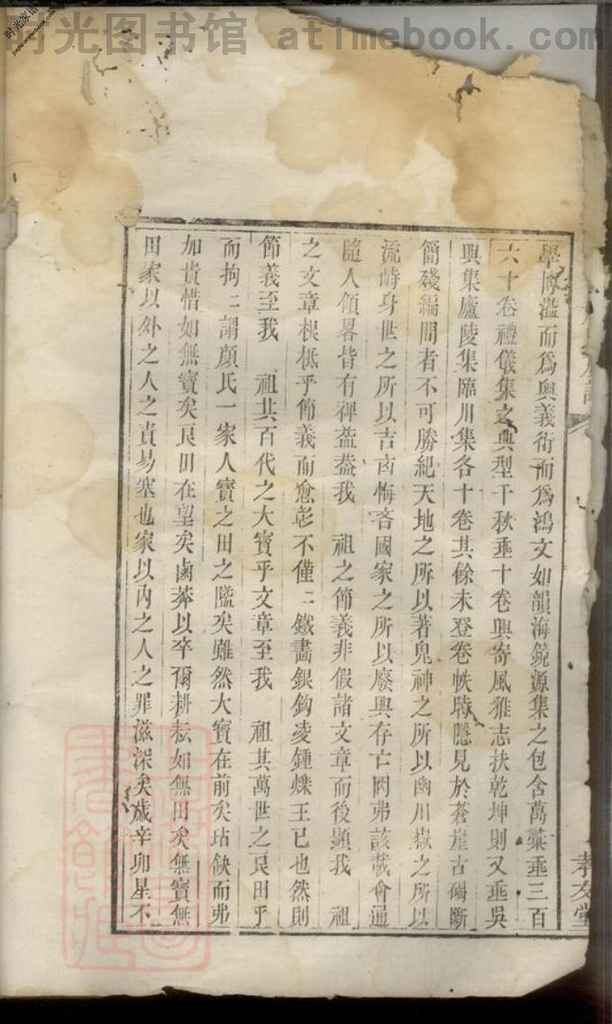 时光图书馆 atimebook.com
學博溢而爲奧義衍而爲鴻文如韻海鏡源集之包含萬藥垂三百
六十卷禮儀集之典型千秋垂十卷興寄風雅志扶乾坤則又垂吳
興集廬陵集臨川集各十卷其餘未登卷帙時隱見於蒼崖古碣斷
簡殘編間者不可勝紀天地之所以著鬼神之所以幽川嶽之所以
流峙身世之所以吉凶悔吝國家之所以廢興存亡罔弗該載會通
隨人領畧皆有禆益葢我 祖之節義非假諸文章而後顯我 祖
之文章根柢乎節義而愈彰不僅二鐵畵銀鈎凌鍾爍王已也然則
節義至我 祖其百代之大寳乎文章至我 祖其萬世之良田乎
而拘二謂顏氏一家人寳之田之隘矣雖然大寳在前矣玷缺而弗
加貴惜如無寳矣良田在望矣鹵莽以卒爾耕耘如無田矣無寳無
田家以外之人之責易塞也家以內之人之罪滋深矣歲辛卯星不
孝友堂